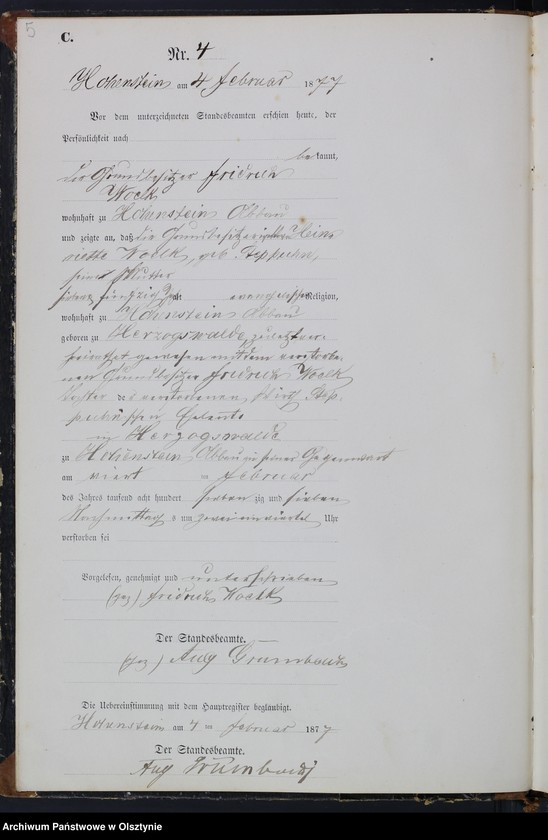 5
C.
Nr. 4
Hohenstein am 4 Februar 1877
Vor dem unterzeichneten Standesbeamten erschien heute, der
Persönlichkeit nach
bekannt,
der Grundbesitzer Friedrich
Woelk
wohnhaft zu Hohenstein Abbau
und zeigte an, daß die Grundbesitzer
riette Woelk, geb.
seine Mutter
alt evangelischer Religion,
wohnhaft zu Hohenstein Abbau
geboren zu Herzogswalde, zuletzt ver-
heirathet gewesen mit dem verstorbe-
nen Grundbesitzer Friedrich Woelk
Tochter der verstorbenen
Eheleute
in Herzogswalde
zu Hohenstein Abbau in seiner Gegenwart
am viert = Februar
des Jahres tausend acht hundert siebenzig und sieben
Nachmittags um zwei ein viertel Uhr
verstorben sei
Vorgelesen, genehmigt und unterschrieben
(gez) Friedrich Woelk
Der Standesbeamte.
(gez) Aug Grumbach
Die Uebereinstimmung mit dem Hauptregister beglaubigt.
Hohenstein am 4 = Februar 1877
Der Standesbeamte.
Aug
Archiwum Państwowe w Olsztynie